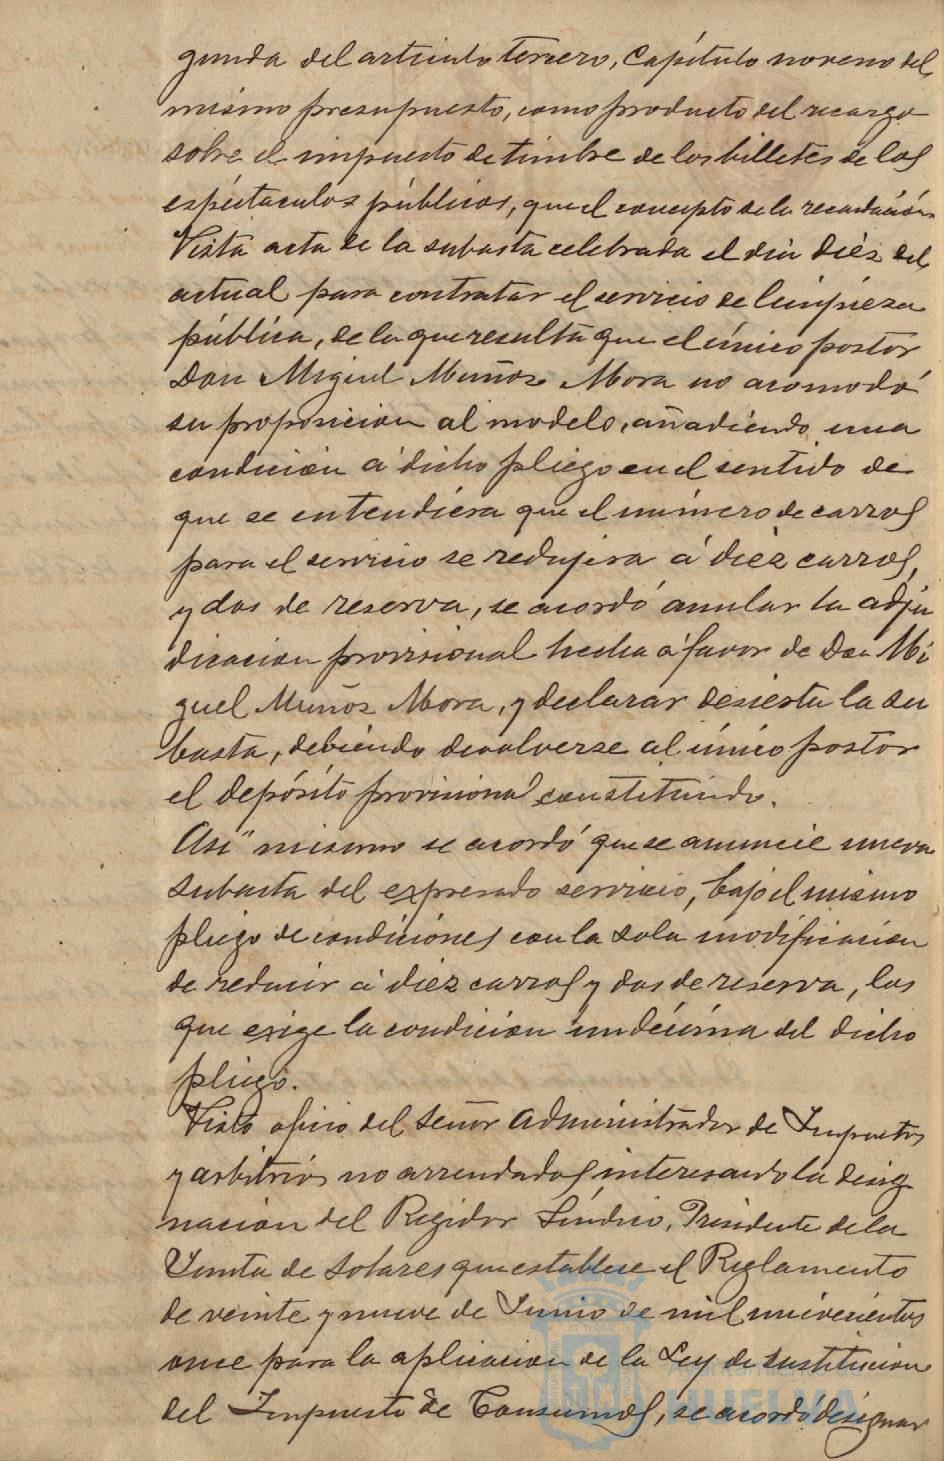 gunda del artículo tercero, Capítulo noveno del
mismo presupuesto, como producto del recargo
sobre el impuesto de timbre de los billetes de los
espectaculos públicos, que el concepto de la recaudación.
Vista acta de la subasta celebrada el día diez del
actual para contratar el servicio de limpieza
pública, de la que resulta que el único postor
Don Miguel Muñoz Mora no acomodó
su proposicion al modelo, añadiendo una
condición á dicho pliego en el sentido de
que se entendiera que el número de carros
para el servicio se redujera á diez carros,
y dos de reserva, se acordó anular la adju
dicacion provisional hecha á favor de Don Mi
guel Muñoz Mora, y declarar desierta la su
basta, debiendo devolverse al único postor
el depósito provisional constituido.
Asi mismo se acordó que se anuncie nueva
subasta del expresado servicio, bajo el mismo
pliego de condiciones con la sola modificacion
de reducir á diez carros y dos de reserva, los
que exige la condicion undécima del dicho
pliego.
Visto oficio del Señor Administrador de Impuestos
y arbitrios no arrendados interesando la desig
nación del Regidor Síndico, Presidente de la
Junta de Solares que establece el Reglamento
de veinte y nueve de Junio de mil novecientos
once para la aplicacion de la Ley de sustitucion
del Impuesto de Consumos, se acordó designar
Ayuntamiento de
HUELVA